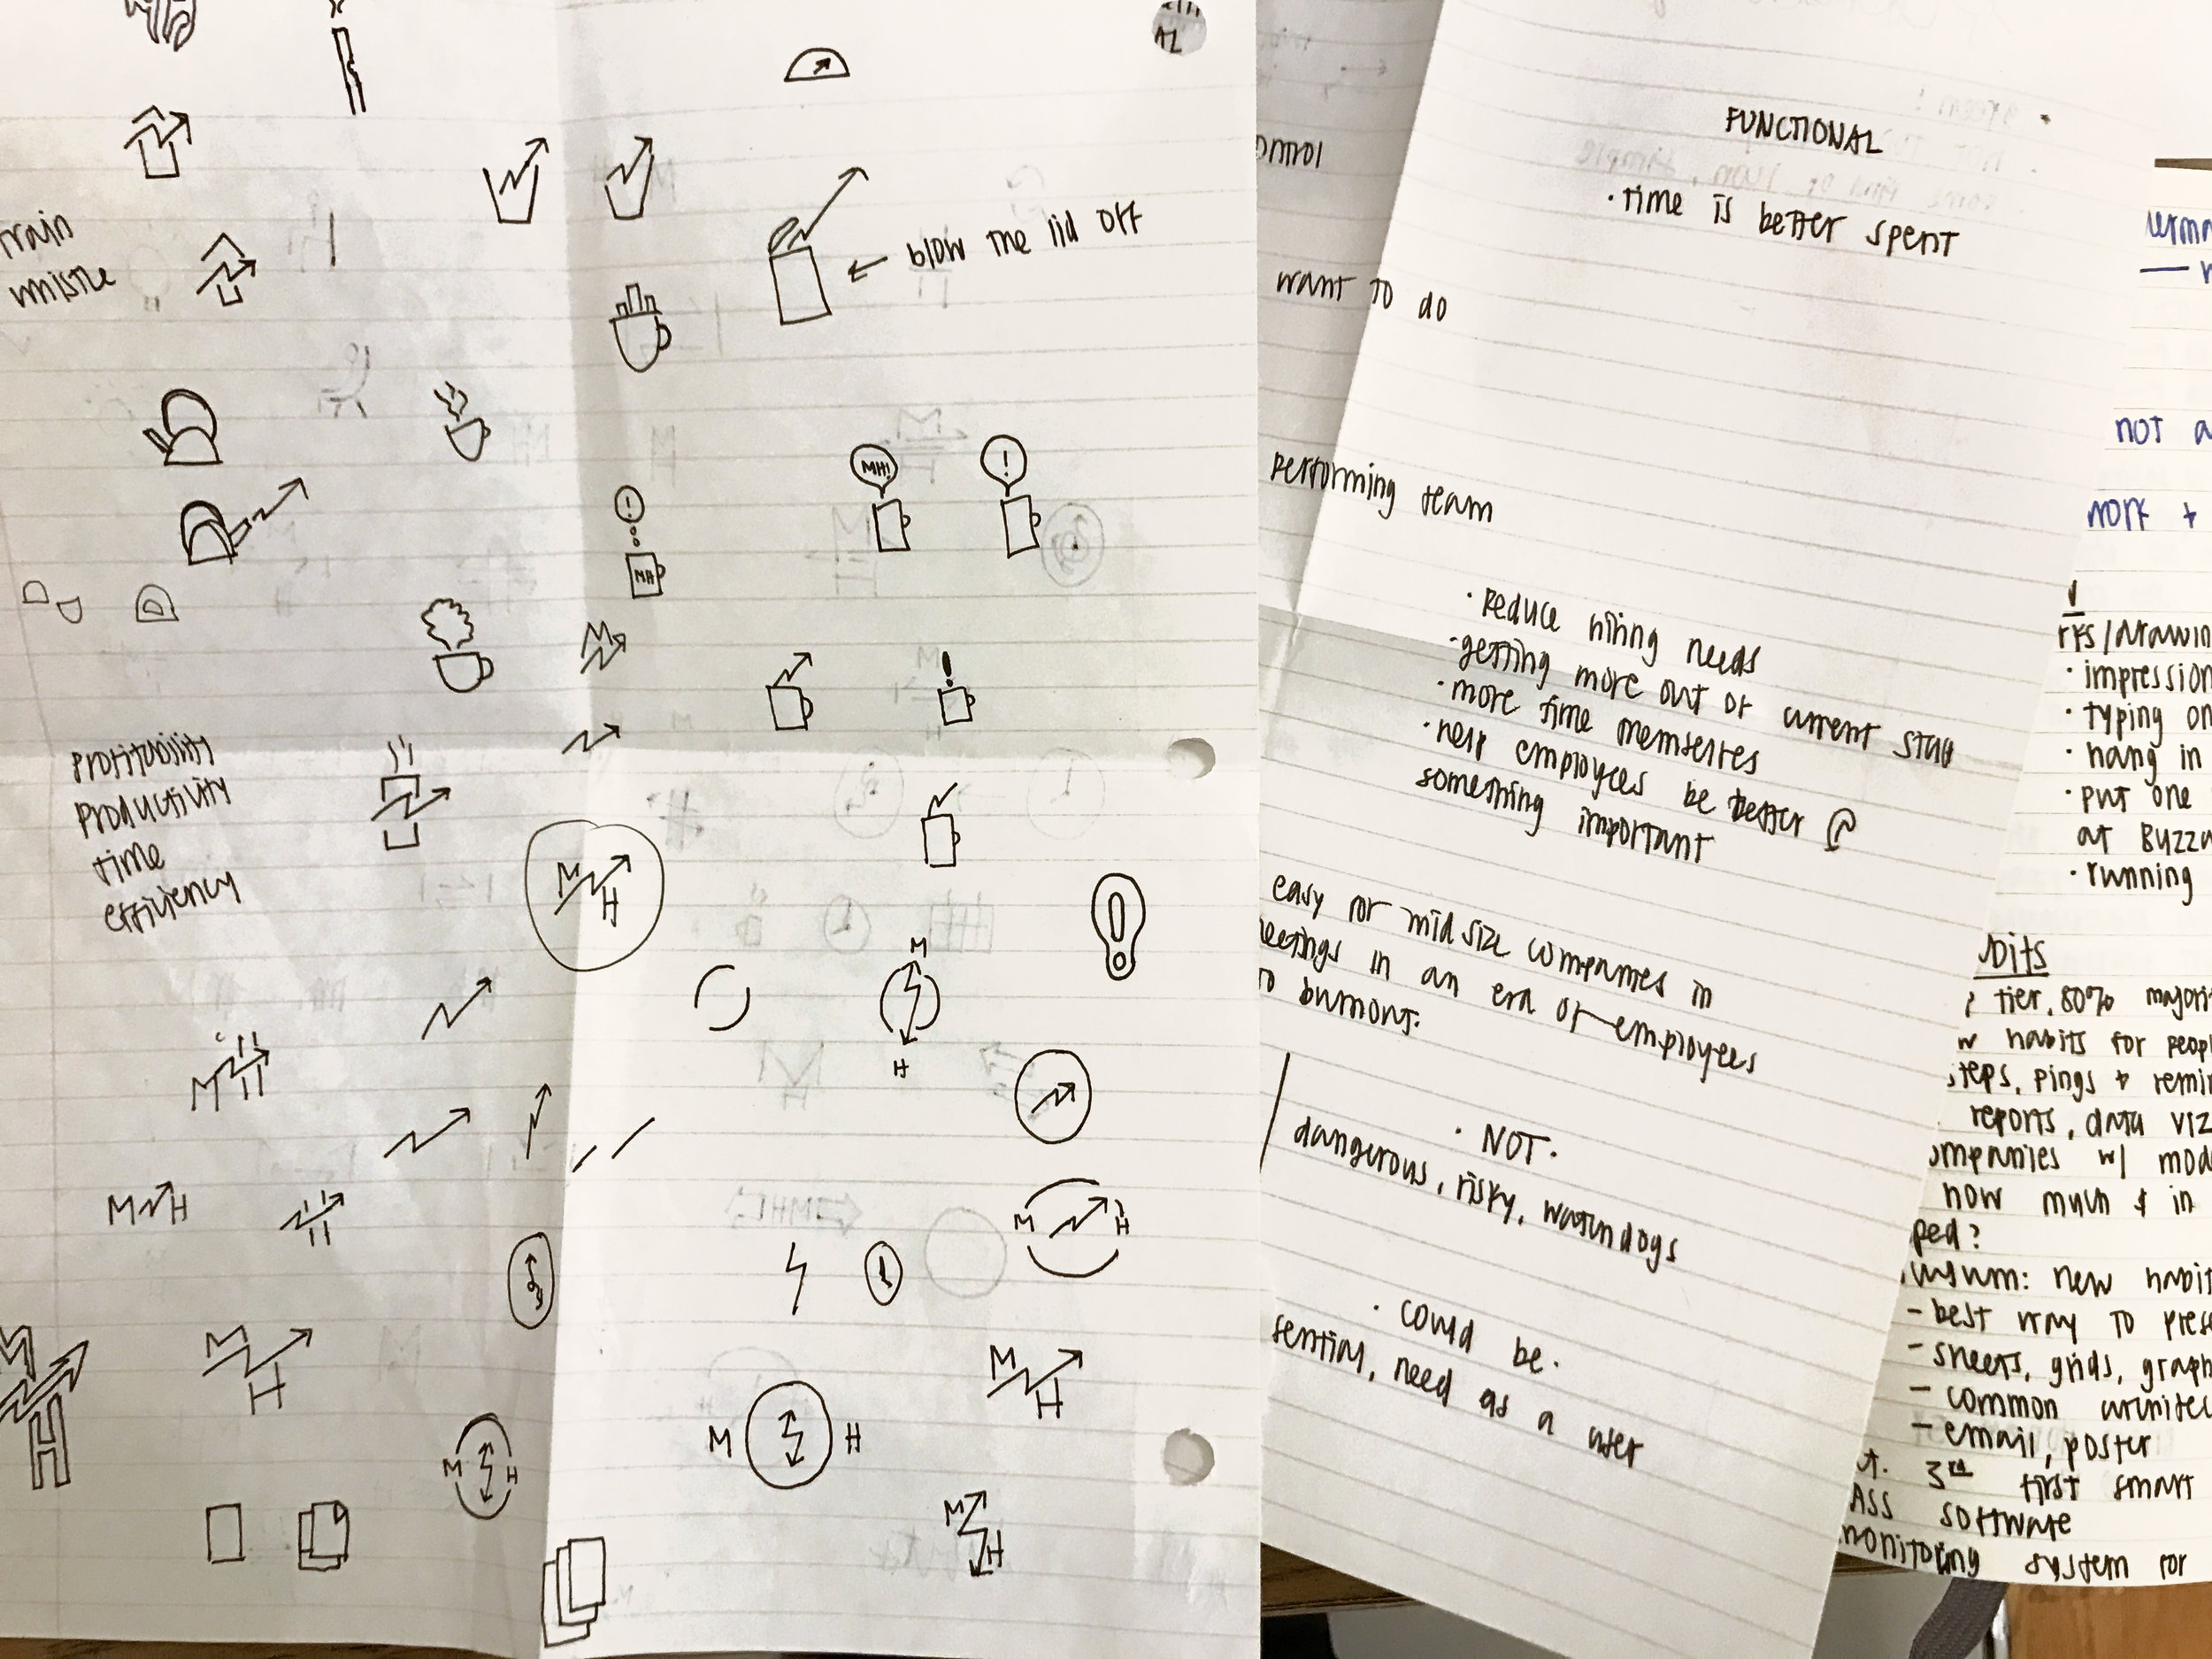 AL
train
whistle
blow the lid off
MH!
!
!
MH
M
!
profitability
productivity
time
efficiency
M
H
M
H
M
M H
M H
M
H
M
H
M
H
M H
M H
M
H
M
H
FUNCTIONAL
· time is better spent
ontrol
want to do
performing team
· reduce hiring needs
· getting more out of current staff
· more time themselves
· help employees be better @
something important
easy for mid size companies in
eetings in an era of employees
to burnout.
· NOT ·
dangerous, risky, watch dogs
· could be ·
sential, need as a user
not a
work +
rks/drawin
· impression
· typing on
· hang in
· put one
at Buzzw
· running
tier, 80% majori
w habits for peop
steps, pings + remi
reports, data viz
ompanies w/ mod
how much & in
ped?
: new habit
- best way to prese
- sheets, grids, graph
- common architec
- email, poster
t. 3rd first smart
ASS software
monitoring system for